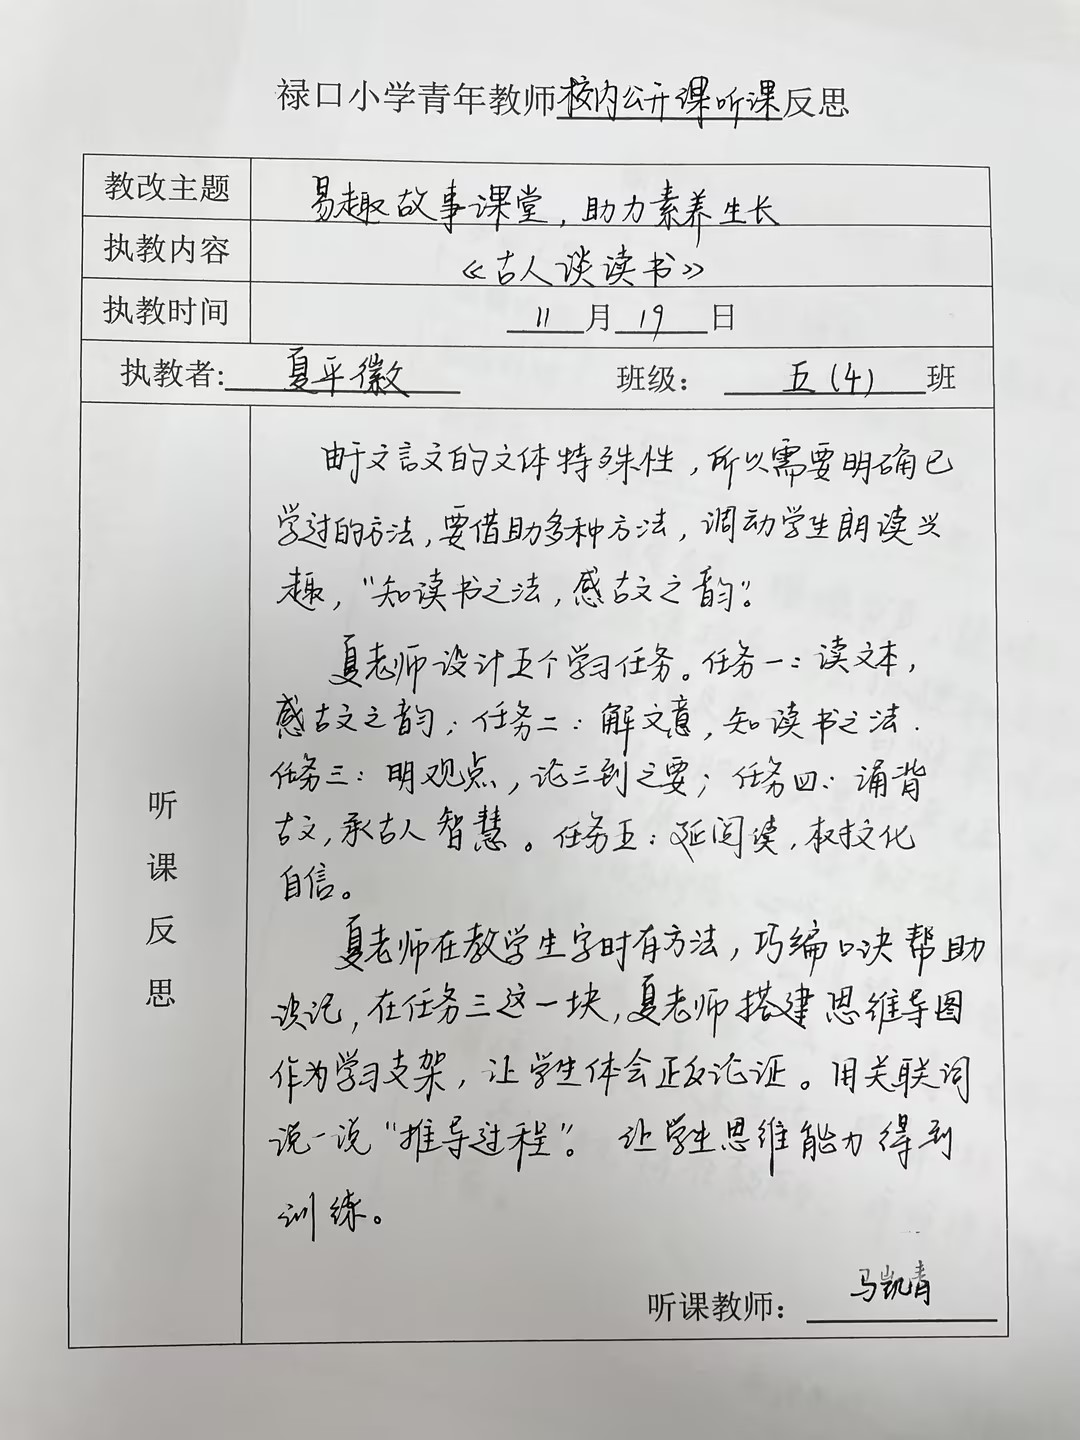 禄口小学青年教师校内公开课听课反思
教改主题 易趣故事课堂，助力素养生长
执教内容 《古人谈读书》
执教时间 11月19日
执教者：夏平徽 班级：五（4）班
听课反思
由于文言文的文体特殊性，所以需要明确已
学过的方法，要借助多种方法，调动学生朗读兴
趣，“知读书之法，感古文之韵”。
夏老师设计五个学习任务。任务一：读文本，
感古文之韵；任务二：解文意，知读书之法．
任务三：明观点，论三到之要；任务四：诵背
古文，承古人智慧。任务五：延阅读，树文化
自信。
夏老师在教学生字时有方法，巧编口诀帮助
识记，在任务三这一块，夏老师搭建思维导图
作为学习支架，让学生体会正反论证。用关联词
说一说“推导过程”。让学生思维能力得到
训练。
听课教师：马凯青